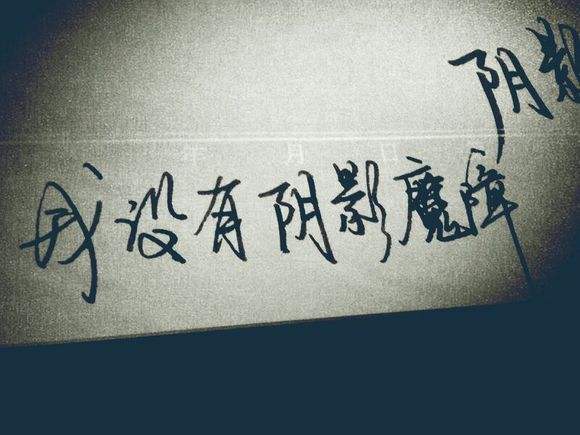 阴影
年 月 日
我没有阴影魔障